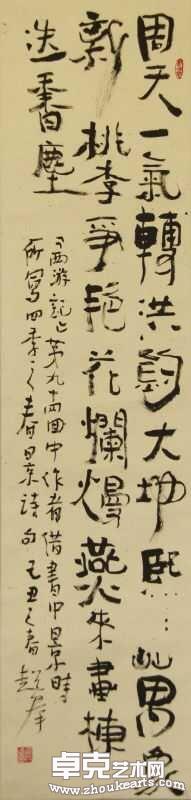 周天一氣轉洪鈞大地熙〻萬象
新桃李爭艳花爛熳燕來畫棟
迭香塵
《西游記》第九十四回中作者借書中景時
所寫四季之春景詩句 己丑之春
卓克艺术网
www.zhoukearts.com